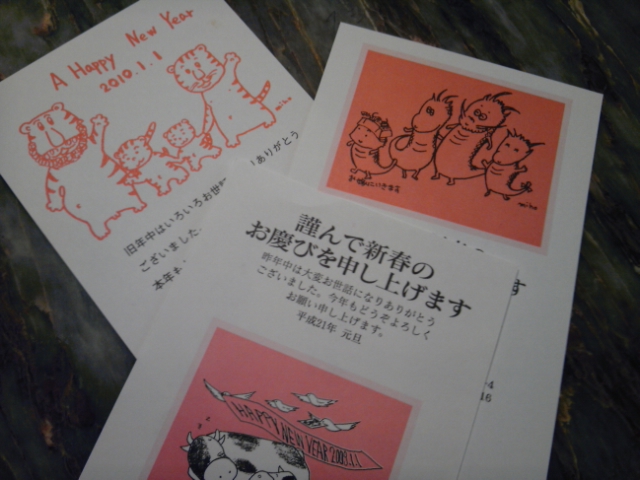 A Happy New Year
2010.1.1
miho
旧年中はいろいろお世
ありがとう
ございました
本年も
miho
す
4
46
謹んで新春の
お慶びを申し上げます
昨年中は大変お世話になりありがとう
ございました。今年もどうぞよろしく
お願い申し上げます。
平成21年 元旦
HAPPY NEW YEAR 2009.1.1